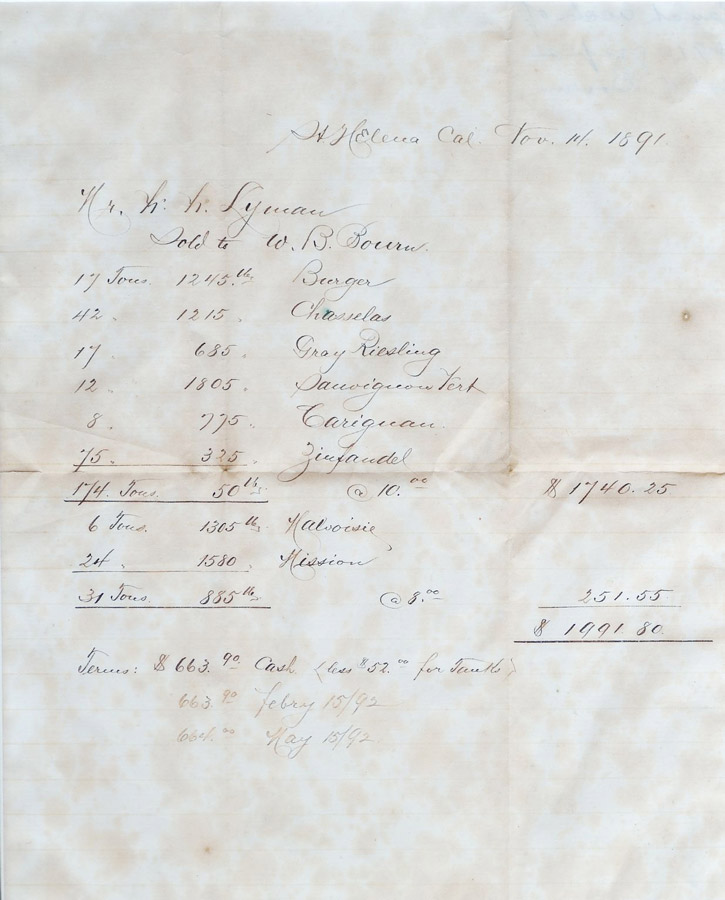 St Helena Cal. Nov. 14. 1891
Mr. W. W. Lyman
Sold to W. B. Bourn.
17 Tons. 1245. lbs Burger
42 " 1215 " Chasselas
17 685 " Gray Riesling
12 " 1805 " Sauvignon Vert
8 " 775 " Carignan.
75 " 325 " Zinfandel
174 Tons 50 lbs @ 10.00 $ 1740.25
6 Tons. 1305 lbs Malvoisie
24 " 1580 " Mission
31 Tons. 885 lbs @ 8.00 251.55
$ 1991.80
Terms: $ 663.90 Cash (less $52.00 for Tanks)
663.90 Febry 15/92
664.00 May 15/92